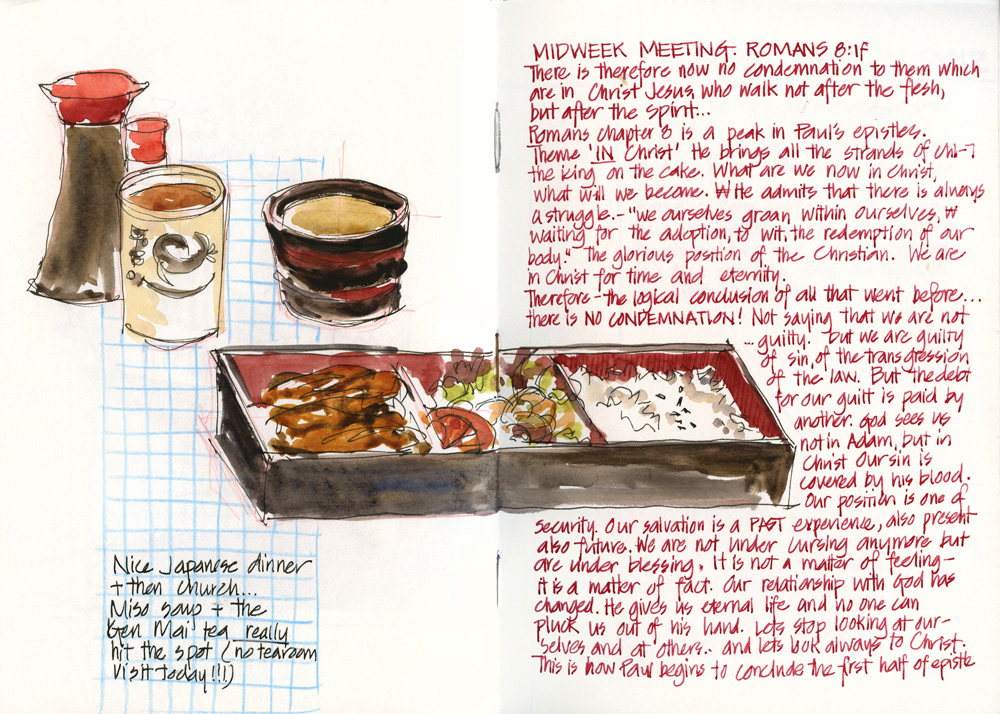 Nice Japanese dinner
+ then church...
Miso soup + the
Gen Mai tea really
hit the spot (no tearoom
visit today!!!)
MIDWEEK MEETING. ROMANS 8:1f
There is therefore now no condemnation to them which
are in Christ Jesus, who walk not after the flesh,
but after the spirit...
Romans chapter 8 is a peak in Paul's epistles.
Theme 'IN Christ' He brings all the strands of ch1-7
the icing on the cake. What are we now in Christ,
what will we become. He admits that there is always
a struggle.- "we ourselves groan within ourselves,
waiting for the adoption, to wit, the redemption of our
body." The glorious position of the Christian. We are
in Christ for time and eternity.
Therefore - the logical conclusion of all that went before...
there is NO CONDEMNATION! Not saying that we are not
... guilty. but we are guilty
of sin, of the transgression
of the law. But the debt
for our guilt is paid by
another. God sees us
not in Adam, but in
Christ Our sin is
covered by his blood.
Our position is one of
security. Our salvation is a PAST experience, also present
also future. We are not under cursing anymore but
are under blessing. It is not a matter of feeling -
it is a matter of fact. Our relationship with God has
changed. He gives us eternal life and no one can
pluck us out of his hand. Lets stop looking at our-
selves and at others.. and lets look always to Christ.
This is how Paul begins to conclude the first half of epistle